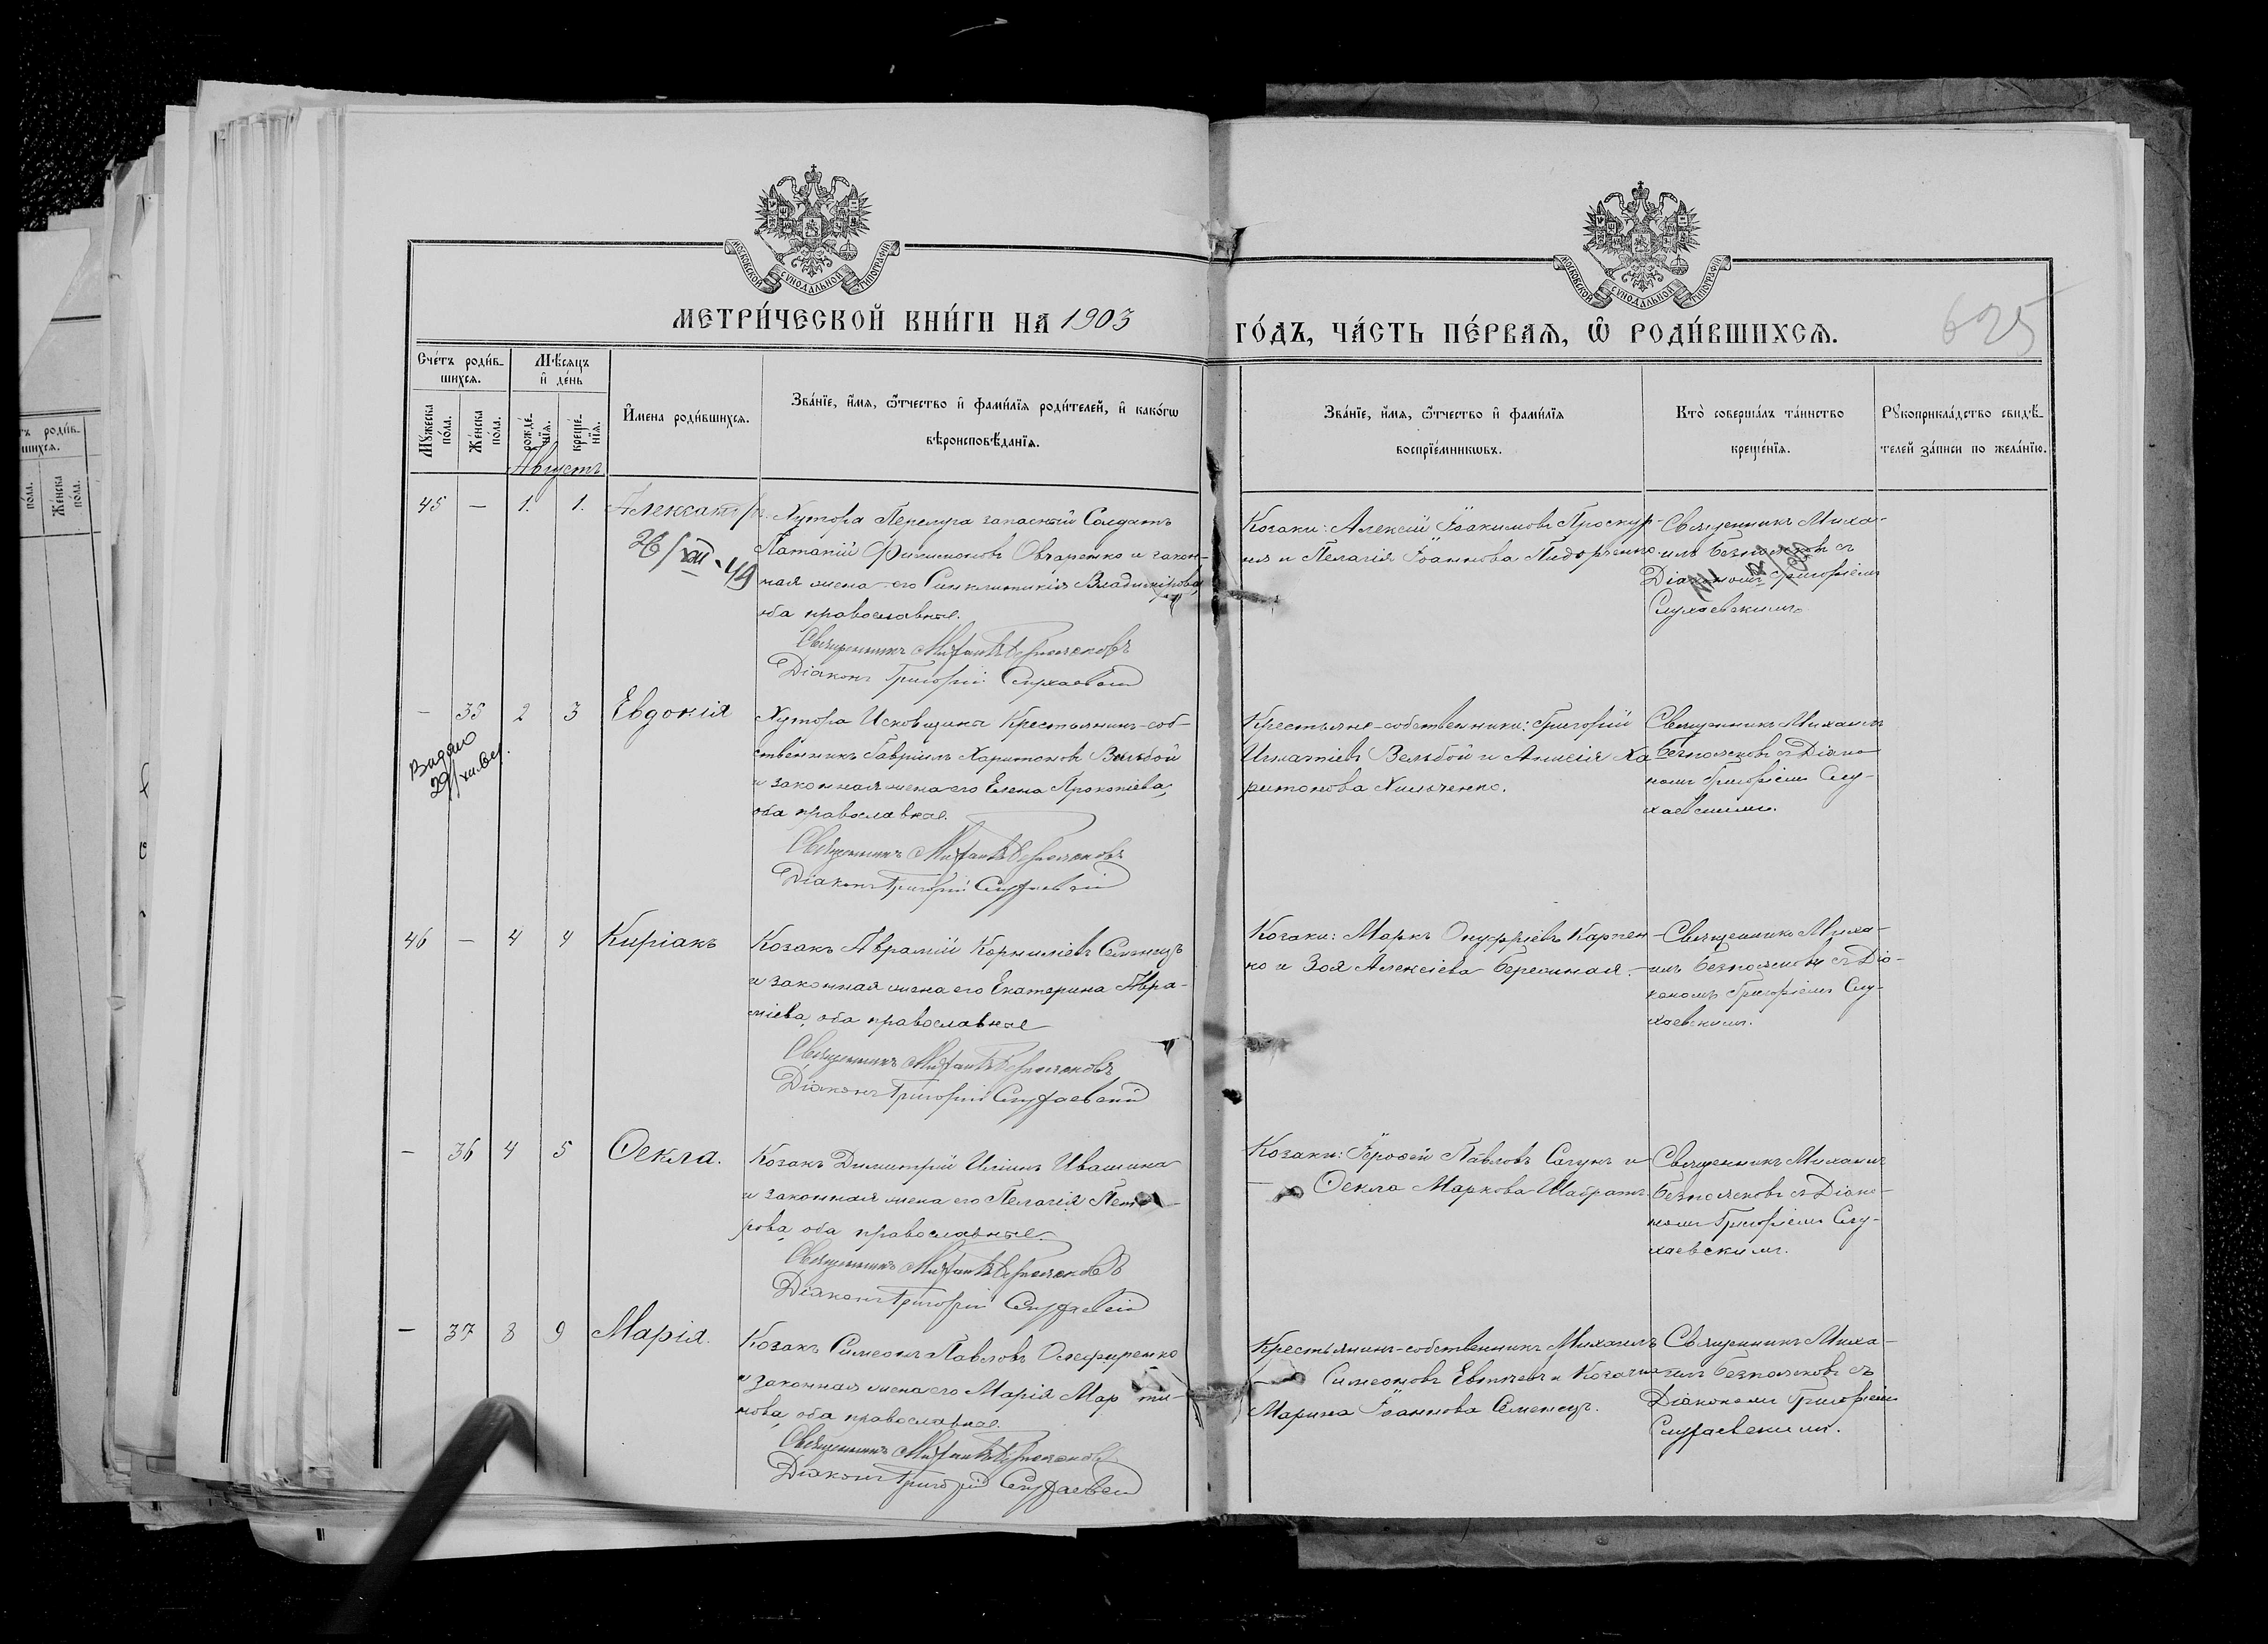 МОСКОВСКОЙ СУНОДАЛЬНОЙ ТИПОГРАФІИ
МОСКОВСКОЙ СУНОДАЛЬНОЙ ТИПОГРАФІИ
МЕТРИ́ЧЕСКОЙ КНИ́ГИ НА 1903
ГО́ДЪ, ЧА́СТЬ ПЕ́РВАЯ, Ѡ РОДИ́ВШИХСЯ.
625
Сче́тъ роди́в-
шихся.
Мѣсяцъ
и де́нь
Мꙋжеска
по́ла.
Же́нска
по́ла.
рожде́-
нїя.
креще́-
нїя.
И́мена роди́вшихся.
Зва́нїе, и́мя, ѻ҆́тчество и фами́лїя роди́телей, и како́гѡ
вѣроисповѣ́данїя.
Зва́нїе, и́мя, ѻ҆́тчество и фами́лїя
воспрїе́мникѡвъ.
Кто̀ соверша́лъ та́инство
креще́нїя.
Рꙋкоприкла́дство свидѣ́-
телей за́писи по жела́нїю.
Августъ
45 — 1. 1. Александръ
Хутора Перелуга запасный Солдатъ
Патапій Филимоновъ Овчаренко и закон-
ная жена его Синклитикія Владимірова,
оба православные.
Священникъ Михаилъ Безпоясковъ
Діаконъ Григорій Слухаевскій
Козаки: Алексій Іоакимовъ Проскур-
ня и Пелагія Іоаннова
Священникъ Миха-
илъ Безпоясковъ съ
Діакономъ Григоріемъ
Слухаевскимъ.
26/XII-49
— 35 2 3 Евдокія
Выдано
Хутора Исковщина Крестьянинъ-соб-
ственникъ Гавріилъ Харитоновъ Вельбой
и законная жена его Елена Прокопіева,
оба православные.
Священникъ Михаилъ Безпоясковъ
Діаконъ Григорій Слухаевскій
Крестьяне-собственники: Григорій
Игнатіевъ Вельбой и Анисія Ха
ритонова Хильченко.
Священникъ Михаилъ
Безпоясковъ съ Діако-
номъ Григоріемъ Слу-
хаевскимъ.
46 — 4 4 Киріакъ
Козакъ Аврамій Корниліевъ Семенецъ
и законная жена его Екатерина Авра-
міева, оба православные
Священникъ Михаилъ Безпоясковъ
Діаконъ Григорій Слухаевскій
Козаки: Маркъ Онуфріевъ Карпен-
ко и Зоя Алексіева Березиная.
Священникъ Миха-
илъ Безпоясковъ съ Діа-
кономъ Григоріемъ Слу-
хаевскимъ.
— 36 4 5 Ѳекла.
Козакъ Димитрій Иліинъ Ивашина
и законная жена его Пелагія Пет-
рова, оба православные.
Священникъ Михаилъ Безпоясковъ
Діаконъ Григорій Слухаевскій
Козаки: Іероѳей Павловъ Сагунъ и
Ѳекла Маркова Шабратъ.
Священникъ Михаилъ
Безпоясковъ съ Діако-
номъ Григоріемъ Слу-
хаевскимъ.
— 37 8 9 Марія.
Козакъ Симеонъ Павловъ Олефиренко
и законная жена его Марія Мар ти-
нова, оба православные.
Священникъ Михаилъ Безпоясковъ
Діаконъ Григорій Слухаевскій
Крестьянинъ-собственникъ Михаилъ
Симеоновъ Евтичевъ и Козачка
Марина Іоаннова Семенецъ.
Священникъ Миха-
илъ Безпоясковъ съ
Діакономъ Григоріемъ
Слухаевскимъ.